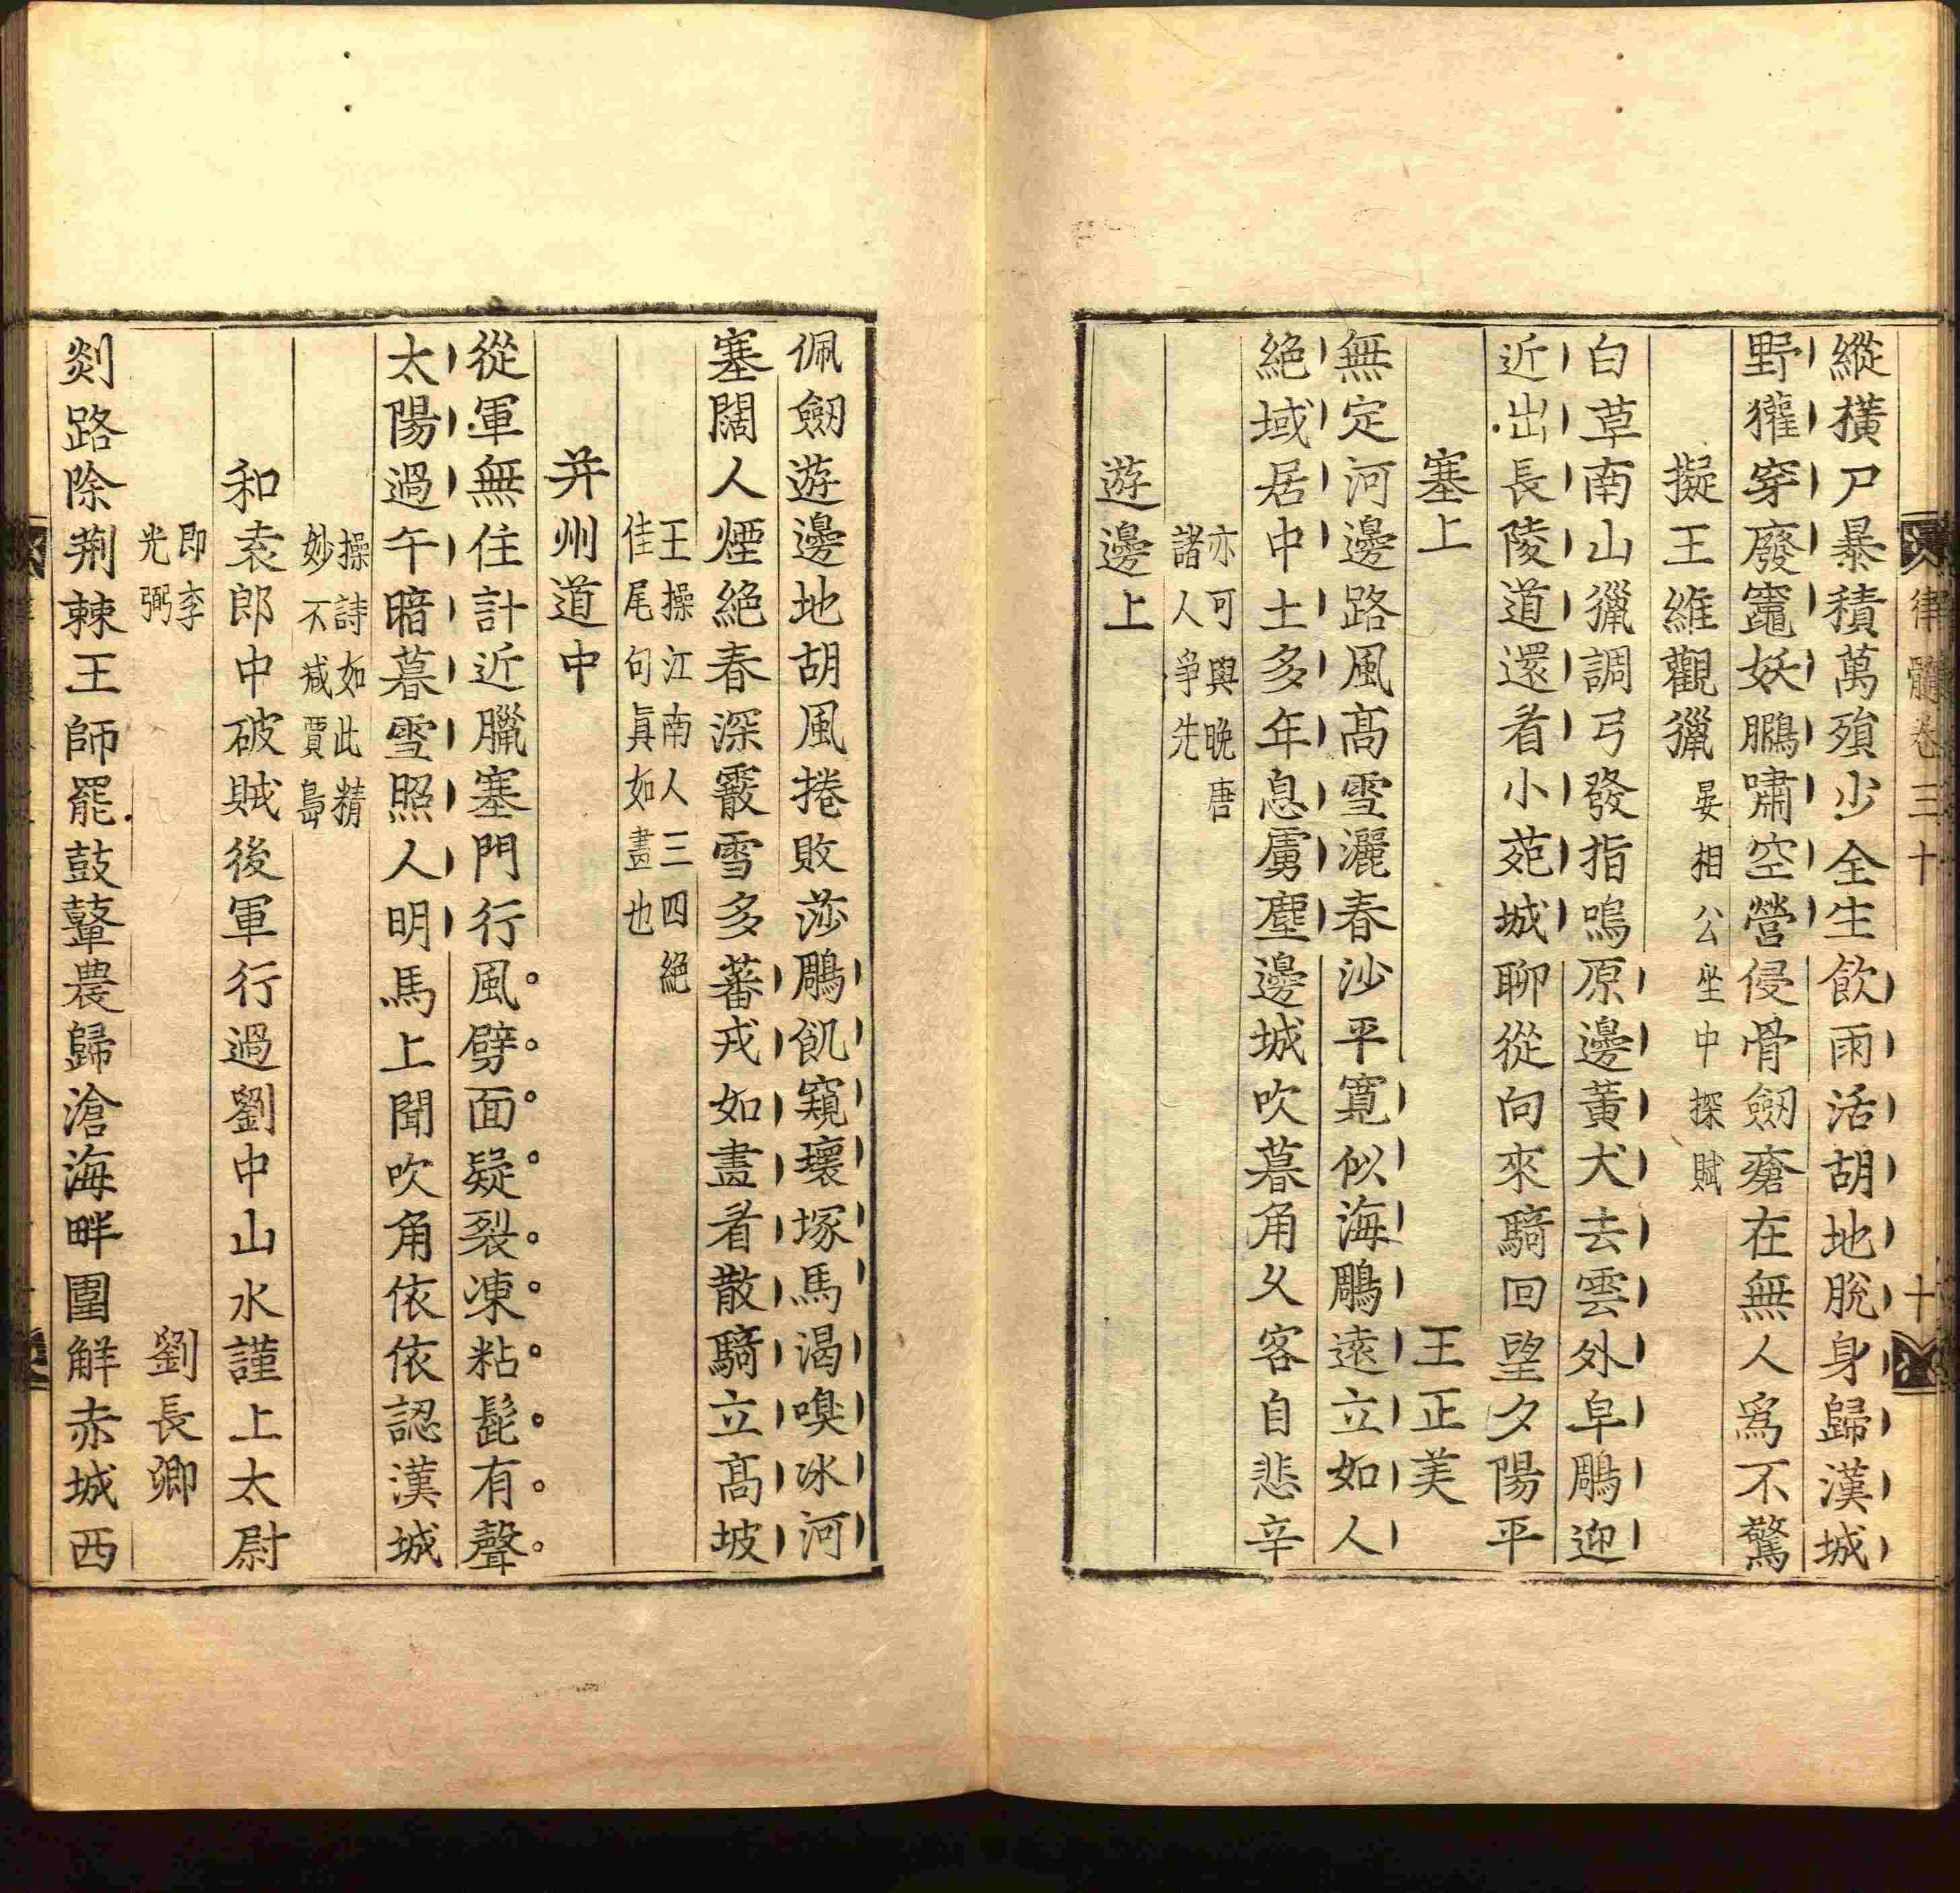 律髓卷三十 十
縱撗尸暴積萬殞少全生飲雨活胡地脫身歸漢城
野獾穿廢竈妖鵩嘯空營侵骨劒瘡在無人爲不驚
擬王維觀獵晏相公坐中探賦
白草南山獵調弓發指鳴原邊黃犬去雲外皁鵰迎
近出長陵道還看小苑城聊從向來騎回望夕陽平
塞上 王正美
無定河邊路風高雪灑春沙平寛似海鵰遠立如人
絕域居中土多年息虜塵邊城吹暮角久客自悲辛
亦可與晚唐
諸人爭先
遊邊上
佩劒遊邊地胡風捲敗莎鵰飢窺壞塚馬渴嗅冰河
塞闊人煙絕春深霰雪多蕃戎如畫看散騎立高坡
王操江南人三四絕
佳尾句眞如畫也
并州道中
從軍無住計近臘塞門行風劈面疑裂凍粘髭有聲
太陽過午暗暮雪照人明馬上聞吹角依依認漢城
操詩如此精
妙不減賈島
和袁郎中破賊後軍行過劉中山水謹上太尉
即李
光弼
劉長卿
剡路除荆棘王師罷鼓鼙農歸滄海畔圍解赤城西